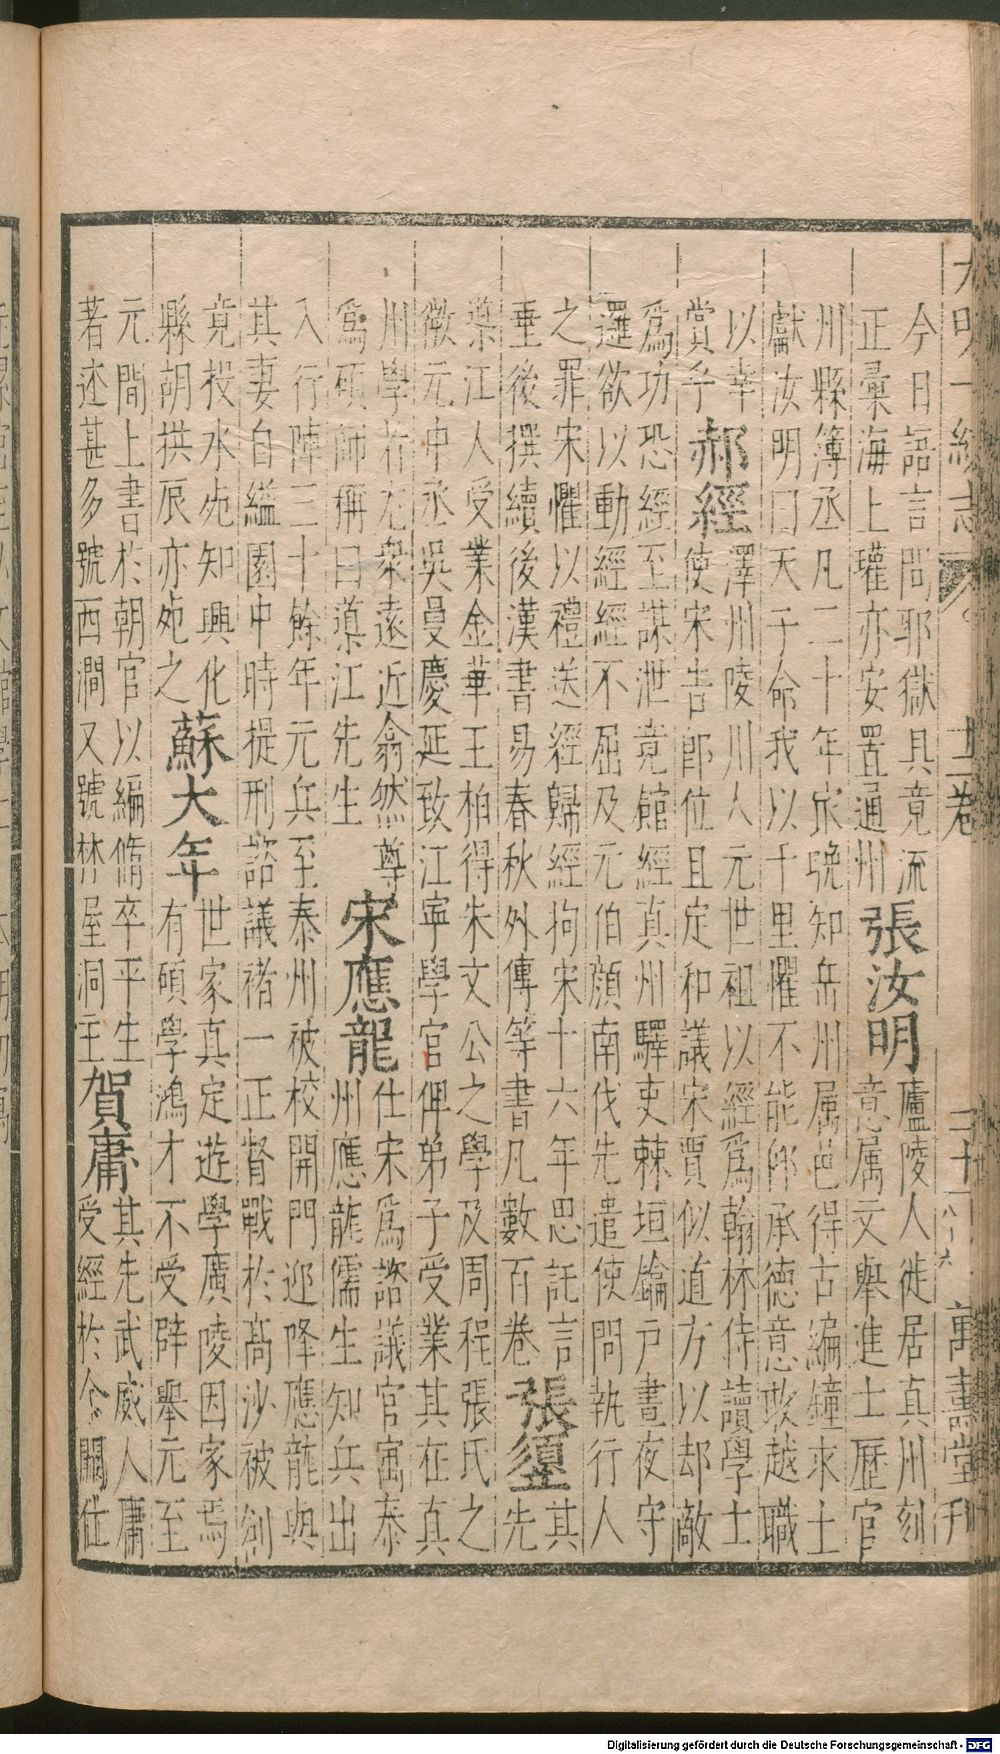 大明一統志 十二卷 三十六 萬壽堂刊
今日語言問耶獄具竟流
正彙海上瓘亦安置通州
張汝明
廬陵人徙居真州刻
意属文舉進士歷官
州縣簿丞凡二十年晚知岳州属邑得古編鐘求上
獻汝明曰天子命我以千里懼不能仰承德意敢越職
以幸
賞乎
郝經
澤州陵川人元世祖以經為翰林侍讀學士
使宋告即位且定和議宋賈似道方以却敵
為功恐經至謀泄竟館經真州驛吏棘垣鑰戶晝夜守
邏欲以動經經不屈及元伯顔南伐先遣使問執行人
之罪宋懼以禮送經歸經拘宋十六年思託言
垂後撰續後漢書易春秋外傳等書凡數百卷
張𩓣
其
先
導江人受業金華王柏得朱文公之學及周程張氏之
微元中丞吳曼慶延致江寧學官俾弟子受業其在真
州學者尤衆遠近翕然尊
為碩師稱曰導江先生
宋應龍
仕宋為諮議官寓泰
州應龍儒生知兵出
入行陣三十餘年元兵至泰州被校開門迎降應龍與
其妻自縊園中時提刑諮議褚一正督戰於高沙被創
竟投水死知興化
縣胡拱辰亦死之
蘇大年
世家真定遊學廣陵因家焉
有碩學鴻才不受辟舉元至
元間上書於朝官以編脩卒平生
著述甚多號西澗又號林屋洞主
賀庸
其先武威人庸
受經於余闕仕
Digitalisierung gefördert durch die Deutsche Forschungsgemeinschaft - DFG